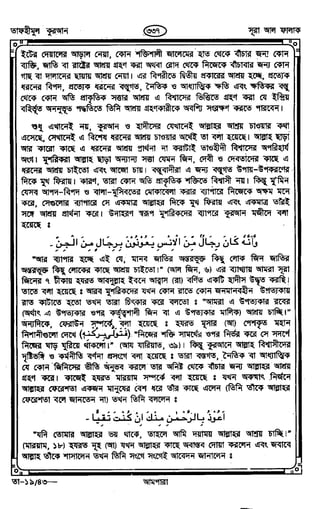 তাফহীমুল কুরআন
৩৩৭
সূরা আল ফালাক
ইটের দেয়ালের আড়াল নেয়া, কোন শক্তিশালী জালেমের হাত থেকে বাঁচার জন্য কোন
ব্যক্তি, জাতি বা রাষ্ট্রের আশ্রয় গ্রহণ করা অথবা রোদ থেকে নিজেকে বাঁচাবার জন্য কোন
গাছ বা দালানের ছায়ায় আশ্রয় নেয়া। এর বিপরীতে দ্বিতীয় প্রকারের আশ্রয় হচ্ছে, প্রত্যেক
ধরনের বিপদ, প্রত্যেক ধরনের বস্তুগত, নৈতিক ও আধ্যাত্মিক ক্ষতি এবং ক্ষতিকর বস্তু
থেকে কোন অতি প্রাকৃতিক সত্তার আশ্রয় এ বিশ্বাসের ভিত্তিতে গ্রহণ করা যে ইন্দ্রিয়
বহির্ভূত অননুভূত পদ্ধতিতে তিনি আশ্রয় গ্রহণকারীকে অবশ্যি সংরক্ষণ করতে পারবেন।
শুধু এখানেই নয়, কুরআন ও হাদীসের যেখানেই আল্লাহর আশ্রয় চাওয়ার কথা
এসেছে, সেখানেই এ বিশেষ ধরনের আশ্রয় চাওয়ার অর্থেই তা বলা হয়েছে। আল্লাহ ছাড়া
আর কারো কাছে এ ধরনের আশ্রয় প্রার্থনা না করাটাই তাওহীদী বিশ্বাসের অপরিহার্য
অংশ। মুশরিকরা আল্লাহ ছাড়া অন্যান্য সত্তা যেমন জিন, দেবী ও দেবতাদের কাছে এ
ধরনের আশ্রয় চাইতো এবং আজো চায়। বস্তুবাদীরা এ জন্য বস্তুগত উপায়-উপকরণের
দিকে মুখ ফিরায়। কারণ, তারা কোন অতি প্রাকৃতিক শক্তিতে বিশ্বাসী নয়। কিন্তু মু'মিন
যেসব আপদ-বিপদ ও বালা-মুসিবতের মোকাবেলা করার ব্যাপারে নিজেকে অক্ষম মনে
করে, সেগুলোর ব্যাপারে সে একমাত্র আল্লাহর দিকে মুখ ফিরায় এবং একমাত্র তাঁরই
সঙ্গে আশ্রয় প্রার্থনা করে। উদাহরণ স্বরূপ মুশরিকদের ব্যাপারে কুরআন মজীদে বলা
হয়েছে :
وَأَنَّهُ كَانَ رِجَالٌ مِّنَ الْإِنْسِ يَعُوْذُوْنَ بِرِجَالٍ مِّنَ الْجِنِّ -
"আর ব্যাপার হচ্ছে এই যে, মানব জাতির অন্তরভুক্ত কিছু লোক জিন জাতির
অন্তরভুক্ত কিছু লোকের কাছে আশ্রয় চাইতো।" (আল জিন, ৬) এর ব্যাখ্যায় আমরা সূরা
জিনের ৭ টীকায় হযরত আবদুল্লাহ ইবনে আব্বাস (রা) বর্ণিত একটি হাদীস উদ্ধৃত করেছি।
তাতে বলা হয়েছে : আরব মুশরিকদের যখন কোন রাতে কোন জনমানবহীন উপত্যকায়
রাত কাটাতে হতো তখন তারা চিৎকার করে বলতো : "আমরা এ উপত্যকার রবের
(অর্থাৎ এ উপত্যকার ওপর কর্তৃত্বশালী জিন বা এ উপত্যকার মালিক) আশ্রয় চাচ্ছি।"
অন্যদিকে, ফেরাউন সম্পর্কে বলা হয়েছে : হযরত মূসার (আ) পেশকৃত মহান
নিশানীগুলো দেখে (فَتَوَلّٰى بِرُكْنِهٖ) "নিজের শক্তি সামর্থের ওপর নির্ভর করে সে সদর্পে
নিজের ঘাড় ঘুরিয়ে থাকলো।" (আয যারিয়াত, ৩৯)। কিন্তু কুরআনে আল্লাহ বিশ্বাসীদের
দৃষ্টিভঙ্গি ও কর্মনীতি বর্ণনা প্রসংগে বলা হয়েছে : তারা বস্তুগত, নৈতিক বা আধ্যাত্মিক
যে কোন জিনিসের ভীতি অনুভব করলে তার অনিষ্ট থেকে বাঁচার জন্য আল্লাহর আশ্রয়
গ্রহণ করে। কাজেই হযরত মারয়াম সম্পর্কে বলা হয়েছে : যখন অকস্মাৎ নির্জনে
আল্লাহর ফেরেশতা একজন মানুষের বেশ ধরে তাঁর কাছে এলেন (তিনি তাঁকে আল্লাহর
ফেরেশতা বলে জানতেন না) তখন তিনি বললেন :
أَعُوْذُ بِالرَّحْمٰنِ مِنْكَ إِنْ كُنْتَ تَقِيًّا -
"যদি তোমার আল্লাহর ভয় থাকে, তাহলে আমি দয়াময় আল্লাহর আশ্রয় চাচ্ছি।"
(মারয়াম, ১৮) হযরত নূহ (আ) যখন আল্লাহর কাছে অবাস্তব দোয়া করলেন এবং জবাবে
আল্লাহ তাঁকে শাসালেন তখন তিনি সংগে সংগেই আবেদন জানালেন :
তা-১৯/৪৩—
আমপারা